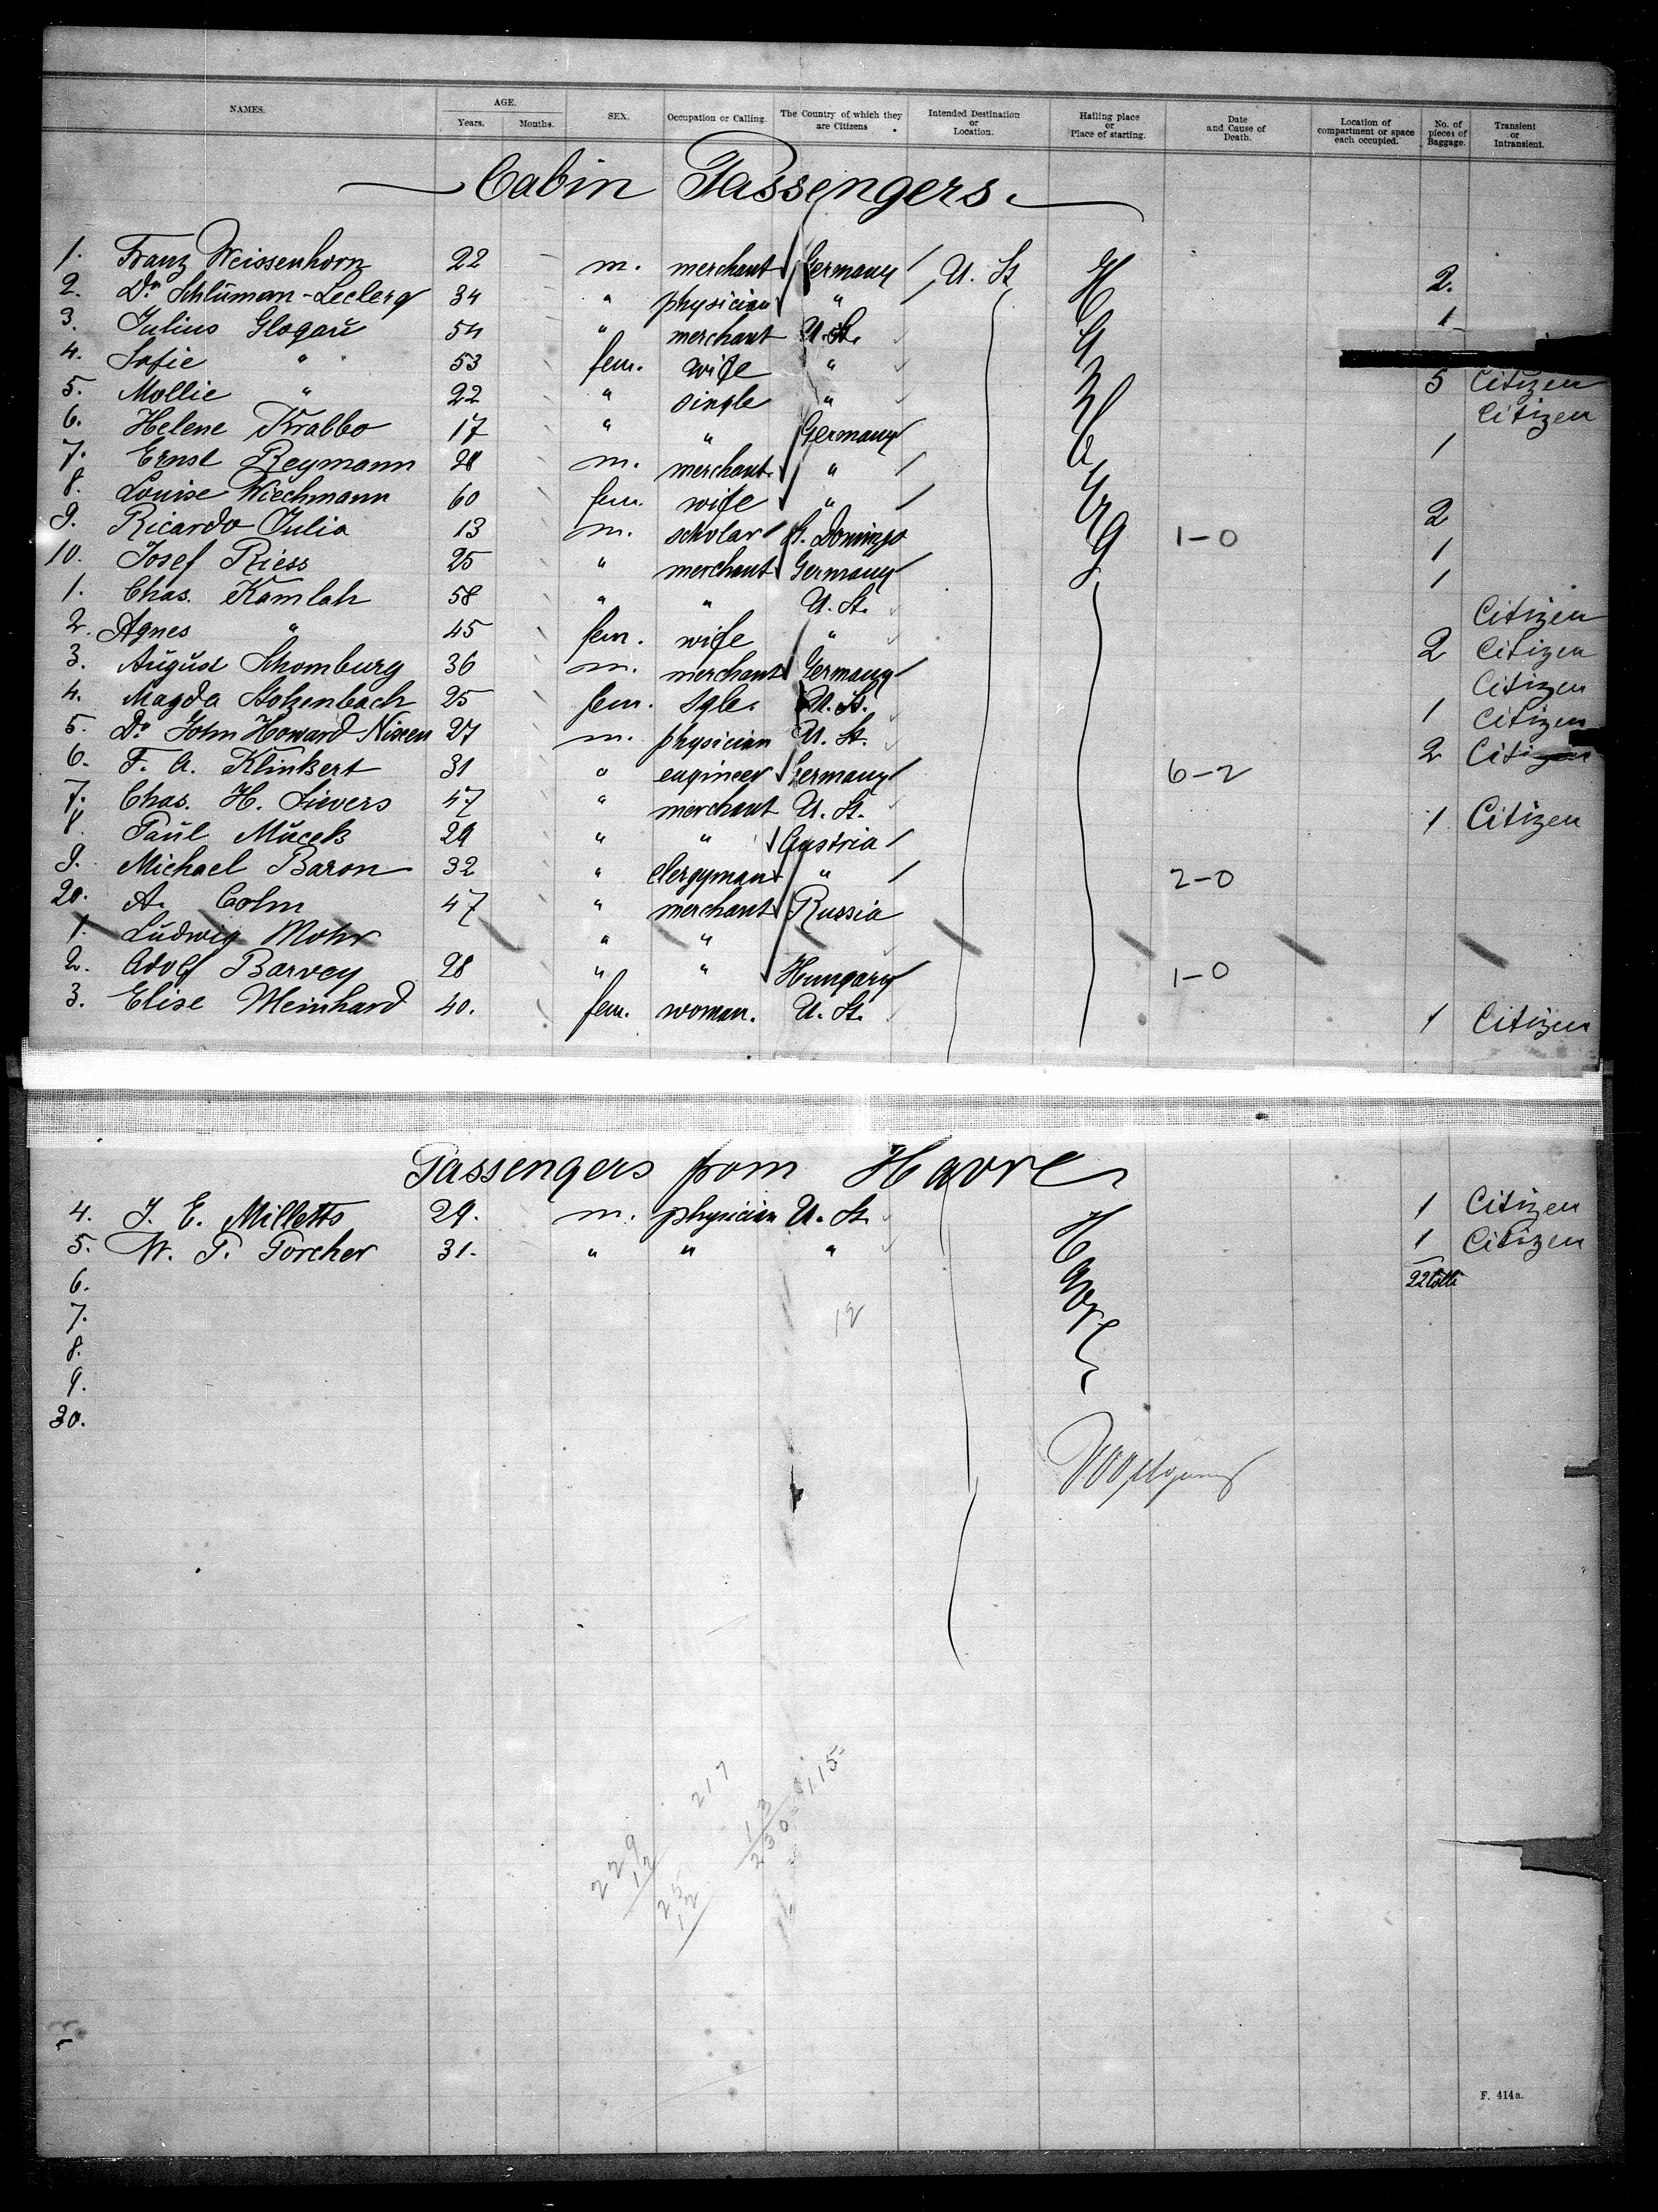 NAMES. AGE. Years. Months. SEX. Occupation or Calling. The Country of which they are Citizens Intended Destination or Location. Hailing place or Place of starting. Date and Cause of Death. Location of compartment or space each occupied. No. of pieces of Baggage. Transient or Intransient.
Cabin Passengers.
1. Franz Weissenhorn 22 m. merchant Germany U. St. 2.
2. Dr. Schluman-Leclerq 34 " physician " 1
3. Julius Glogaŭ 54 " merchant U. St.
4. Sofie " 53 fem. wife " 5 Citizen
5. Mollie " 22 " single " Citizen
6. Helene Krabbo 17 " " Germany 1
7. Ernst Reymann 28 m. merchant "
8. Louise Wiechmann 60 fem. wife " 2
9. Ricardo Julia 13 m. scholar St. Domingo 1-0 1
10. Josef Riess 25 " merchant Germany 1
Hamburg
1. Chas. Kamlah 58 " " U. St. Citizen
2. Agnes " 45 fem. wife " 2 Citizen
3. Aŭgŭst Schomburg 36 m. merchant Germany Citizen
4. Magda Stolzenbach 25 fem. sgle. U. St. 1 Citizen
5. Dr. John Howard Nissen 27 m. physician U. St. 2 Citizen
6. F. A. Klinkert 31 " engineer Germany 6-2
7. Chas. H. Sievers 47 " merchant U. St. 1 Citizen
8. Paŭl Mŭcek 29 " " Austria
9. Michael Baron 32 " clergyman " 2-0
20. A. Cohn 47 " merchant Russia
1. Lŭdwig Mohr " "
2. Adolf Barvey 28 " " Hungary 1-0
3. Elise Meinhard 40. fem. woman. U. St. 1 Citizen
Passengers from Havre
4. J. E. Milletts 29. m. physician U. St. 1 Citizen
5. W. P. Porcher 31. " " " 1 Citizen
6. 22 Colli
Havre
7. 12
8.
9.
30.
217
13
230 = 115
229
12
25
12
F. 414a.